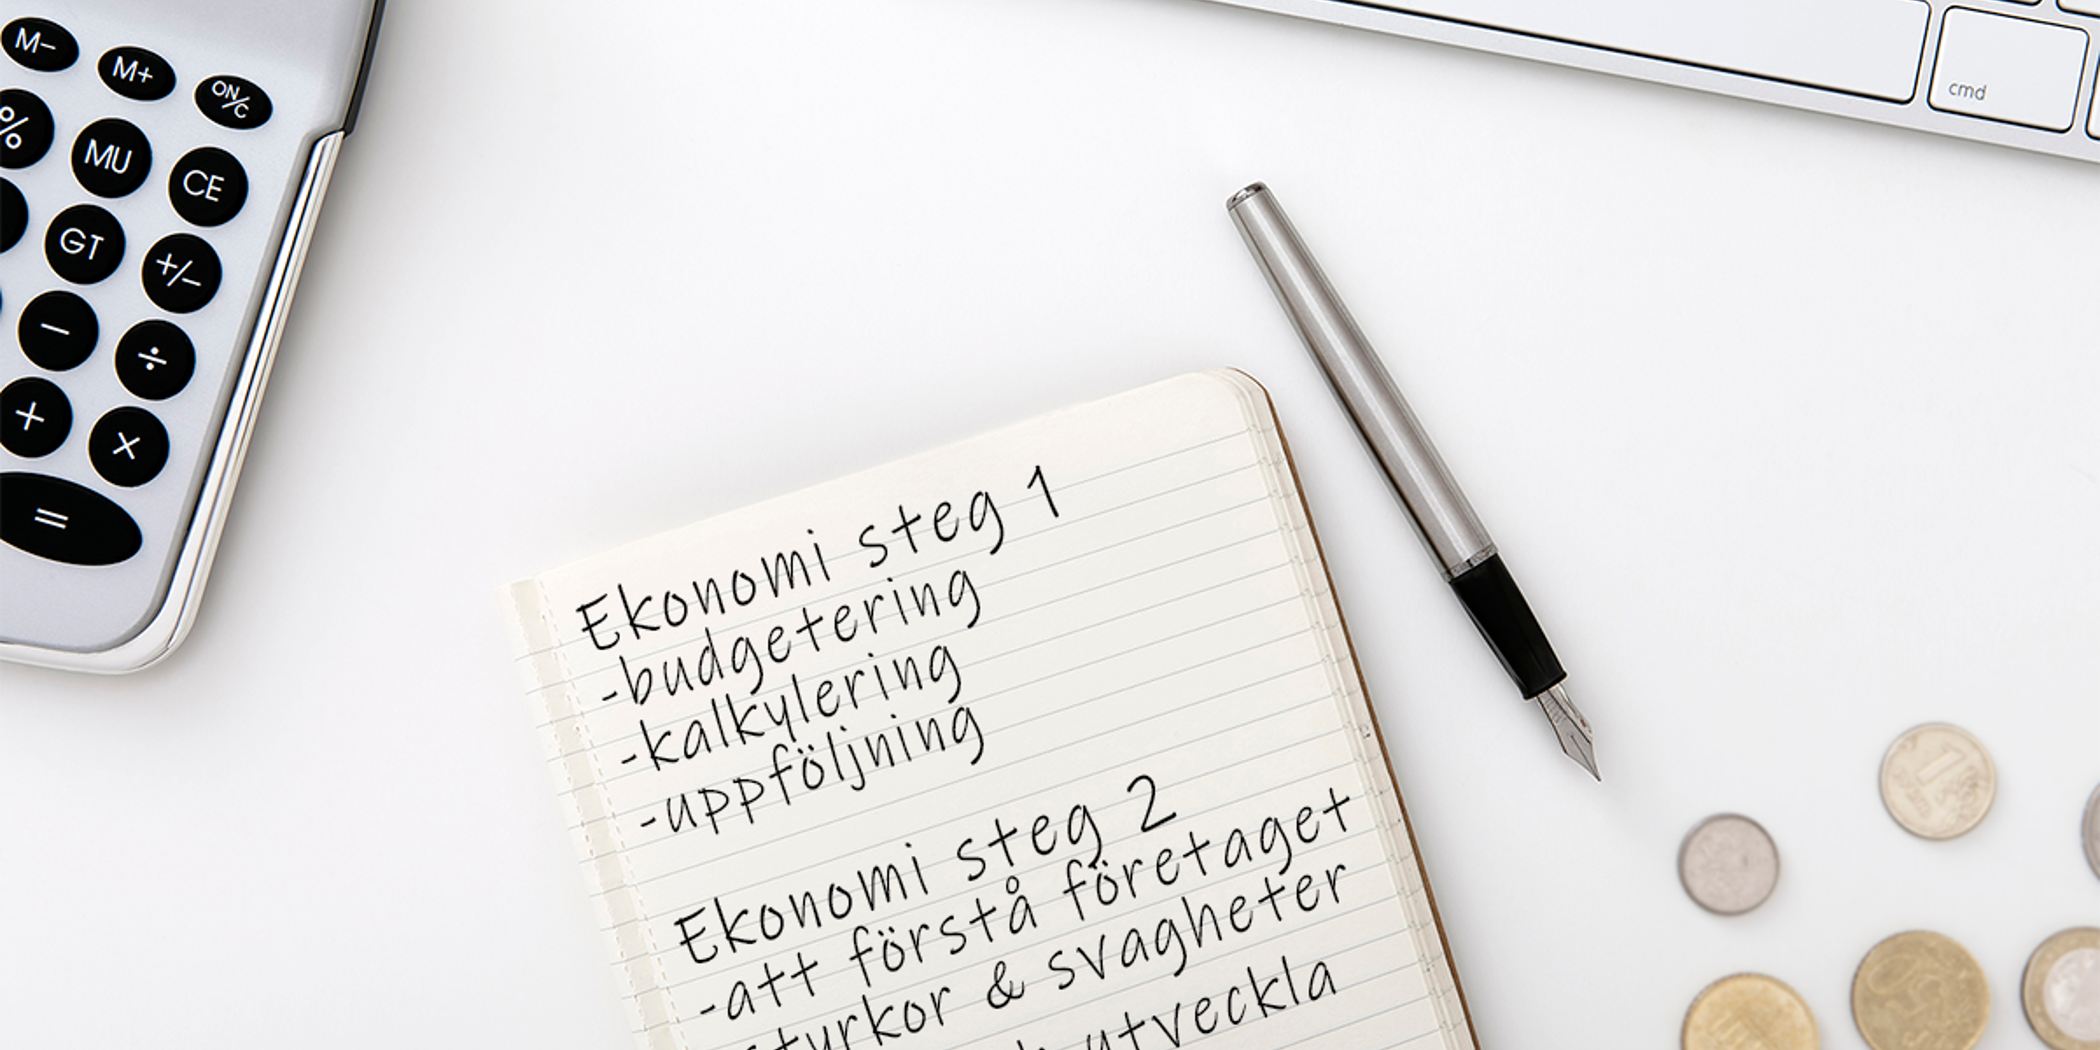 M−
M+
ON/C
%
MU
CE
GT
+/−
−
÷
+
×
=
cmd
Ekonomi steg 1
-budgetering
-kalkylering
-uppföljning
Ekonomi steg 2
-att förstå företaget
styrkor & svagheter
utveckla